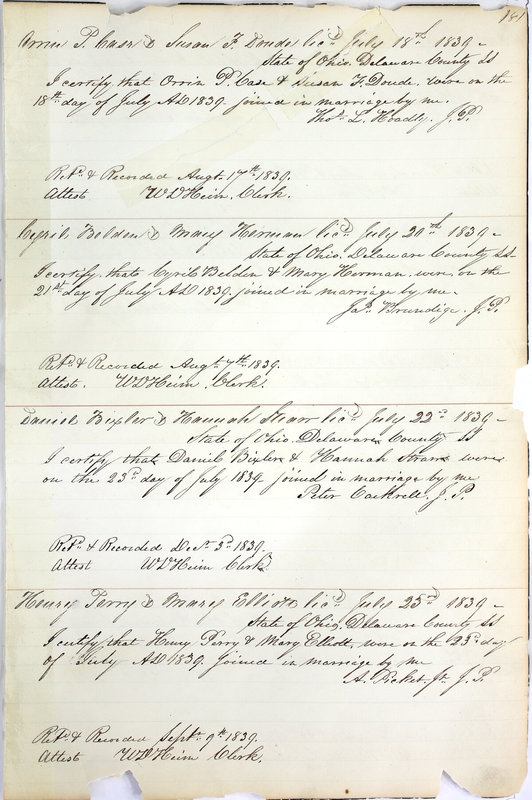 181
Orrin P. Case & Susan F. Doude lic'd July 18th 1839 -
State of Ohio Delaware County ss
I certify that Orrin P. Case & Susan F. Doude, were on the
18th day of July AD 1839. joined in marriage by me.
Thos L. Hoadly. J.P.
Retd & Recorded Augt. 17th 1839.
Attest W D Heim, Clerk.
Cyril Belden & Mary Herman lic'd July 20th 1839 -
State of Ohio. Delaware County ss
I certify, that Cyril Belden & Mary Herman, were, on the
21st day of July AD 1839. joined in marriage by me -
Jas. Brundige, J.P.
Retd & Recorded Augt. 7th 1839.
Attest. W D Heim, Clerk.
Daniel Bixler & Hannah Straw lic'd July 22d 1839 -
State of Ohio. Delaware County ss
I certify that Daniel Bixler & Hannah Straw were
on the 23d day of July 1839 joined in marriage by me
Peter Cockrell. J.P.
Retd & Recorded Decr 3d 1839.
Attest W D Heim Clerk
Henry Perry & Mary Elliott lic'd July 25d 1839 -
State of Ohio, Delaware County ss
I certify, that Henry Perry & Mary Elliott, were on the 25d day
of July AD 1839. joined in marriage by me
A. Picket. Jr. J.P.
Retd & Recorded Septr 9th 1839.
Attest W D Heim Clerk.